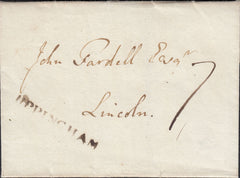 John Fardell Esqr
7
Lincoln.
UPPINGHAM